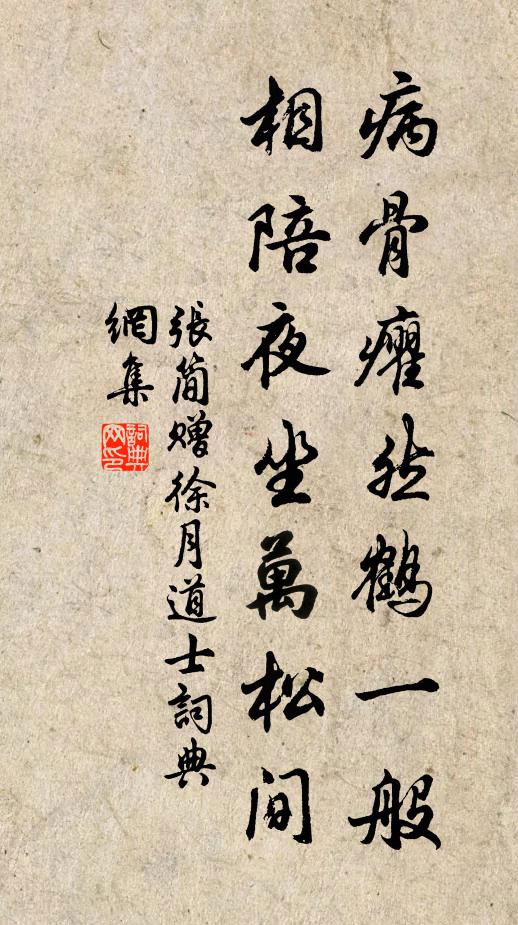 病骨癯然鹤一般
相陪夜坐萬松间
張简赠徐月道士詞典
網集
詞典
网印